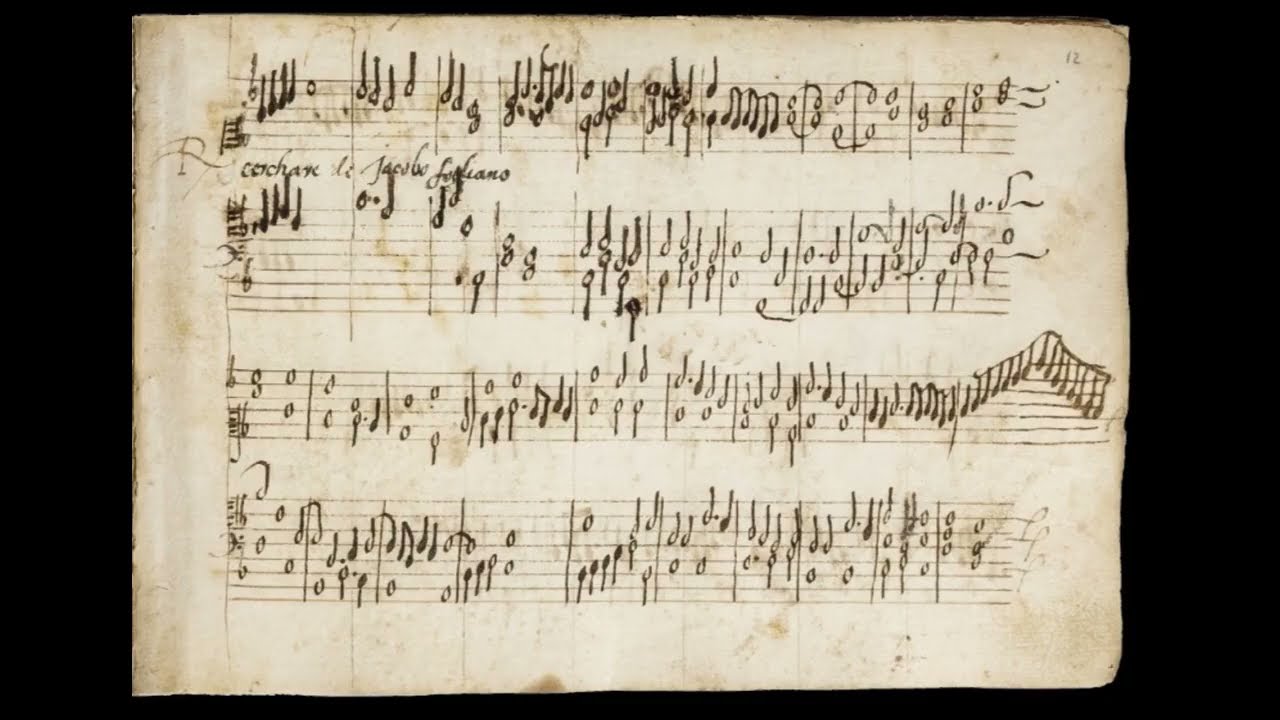 12
Recerchare de Jacobo fogliano